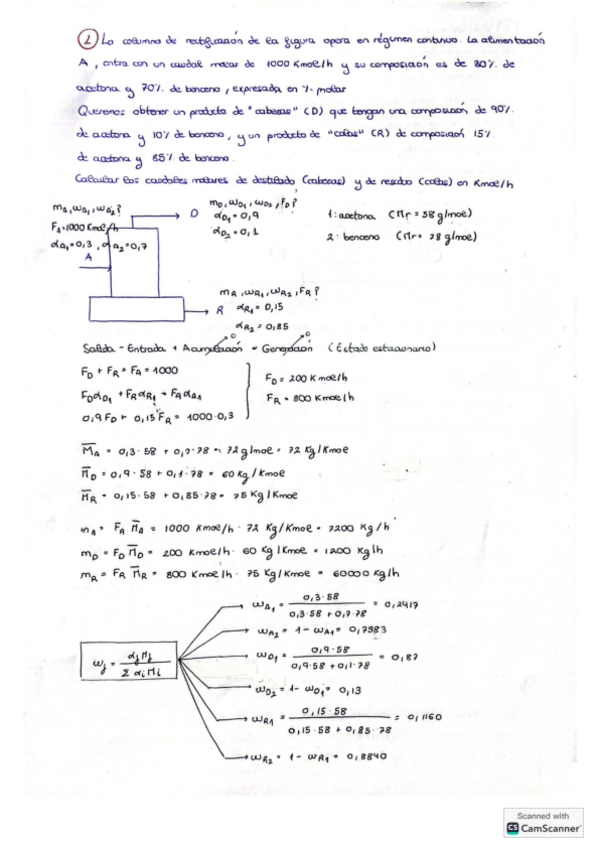 1 La columna de rectificación de la figura opera en régimen continuo. La alimentación
A, entra con un caudal molar de 1000 Kmol/h y su composición es de 30% de
acetona y 70% de benceno, expresada en % molar
Queremos obtener un producto de "cabezas" (D) que tengan una composición de 90%
de acetona y 10% de benceno, y un producto de "colas" (R) de composición 15%
de acetona y 85% de benceno.
Calcular los caudales molares de destilado (cabezas) y de residuo (colas) en Kmol/h
mA, ωA1, ωA2?
FA=1000 Kmol/h
αA1=0,3, αA2=0,7
A
D
mD, ωD1, ωD2, FD?
αD1=0,9
αD2=0,1
1: acetona (Mr= 58 g/mol)
2: benceno (Mr= 78 g/mol)
R
mR, ωR1, ωR2, FR?
αR1=0,15
αR2=0,85
Salida - Entrada + Acumulación = Generación (Estado estacionario)
0
0
FD + FR = FA = 1000
FD αD1 + FR αR1 = FA αA1
0,9 FD + 0,15 FR = 1000·0,3
FD = 200 Kmol/h
FR = 800 Kmol/h
M̄A = 0,3·58 + 0,7·78 = 72 g/mol = 72 Kg/Kmol
M̄D = 0,9·58 + 0,1·78 = 60 Kg/Kmol
M̄R = 0,15·58 + 0,85·78 = 75 Kg/Kmol
mA = FA M̄A = 1000 Kmol/h · 72 Kg/Kmol = 7200 Kg/h
mD = FD M̄D = 200 Kmol/h · 60 Kg/Kmol = 1200 Kg/h
mR = FR M̄R = 800 Kmol/h · 75 Kg/Kmol = 60000 Kg/h
ωj = αj Mj / Σ αi Mi
ωA1 = 0,3·58 / 0,3·58 + 0,7·78 = 0,2417
ωA2 = 1 - ωA1 = 0,7583
ωD1 = 0,9·58 / 0,9·58 + 0,1·78 = 0,87
ωD2 = 1 - ωD1 = 0,13
ωR1 = 0,15·58 / 0,15·58 + 0,85·78 = 0,1160
ωR2 = 1 - ωR1 = 0,8840
Scanned with
CS CamScanner